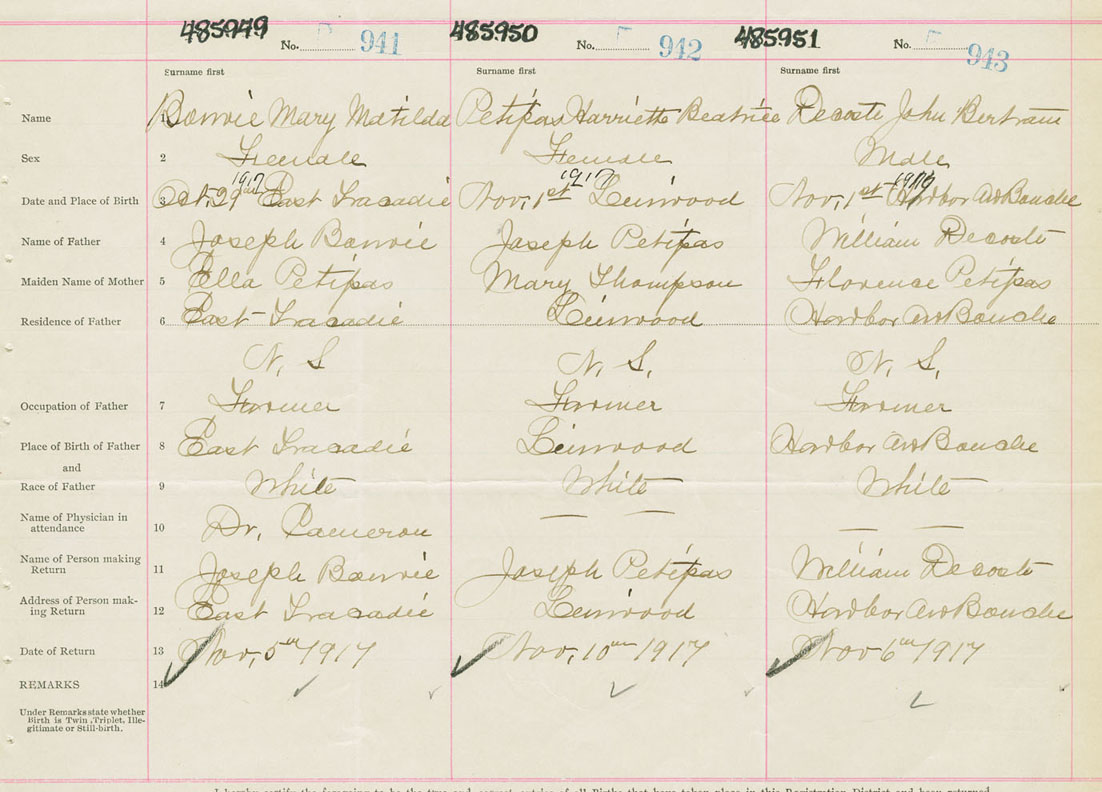 485949 No. 941 485950 No. 942 485951 No. 943
Surname first Surname first Surname first
Name 1 Bonvie Mary Matilda Petipas Harriette Beatrice Decoste John Bertram
Sex 2 Female Female Male
1917 1917
Date and Place of Birth 3 Oct, 29th East Tracadie Nov, 1st Linwood Nov, 1st Harbor Au Bouche
Name of Father 4 Joseph Bonvie Joseph Petipas William Decoste
Maiden Name of Mother 5 Ella Petipas Mary Thompson Florence Petipas
Residence of Father 6 East Tracadie Linwood Harbor Au Bouche
N, S N, S, N, S,
Occupation of Father 7 Farmer Farmer Farmer
Place of Birth of Father 8 East Tracadie Linwood Harbor Au Bouche
and
Race of Father 9 White White White
Name of Physician in
attendance 10 Dr, Cameron — — — —
Name of Person making
Return 11 Joseph Bonvie Joseph Petipas William Decoste
Address of Person mak-
ing Return 12 East Tracadie Linwood Harbor Au Bouche
Date of Return 13 Nov, 5th 1917 Nov, 10th 1917 Nov 6th 1917
REMARKS 14
Under Remarks state whether
Birth is Twin, Triplet, Ille-
gitimate or Still-birth.
I hereby certify the foregoing to be the true and correct entries of all Births that have taken place in this Registration District and been returned